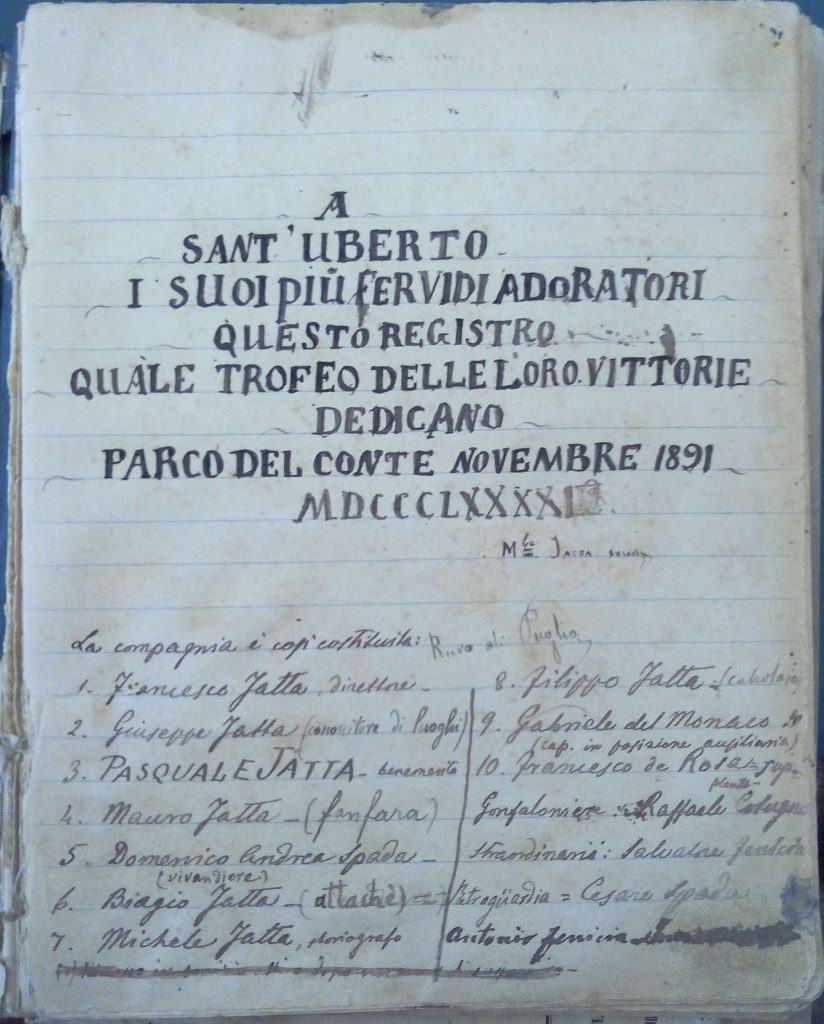 A
SANT'UBERTO
I SUOI PIÙ FERVIDI ADORATORI
QUESTO REGISTRO
QUALE TROFEO DELLE LORO VITTORIE
DEDICANO
PARCO DEL CONTE NOVEMBRE 1891
MDCCCLXXXXI
Mle JATTA
La compagnia è così costituita: Ruvo di Puglia
1. Francesco Jatta, direttore
2. Giuseppe Jatta (conoscitore di luoghi)
3. PASQUALE JATTA - benemerito
4. Mauro Jatta - (fanfara)
5. Domenico Andrea Spada -
(vivandiere)
6. Biagio Jatta - (attachè)
7. Michele Jatta, storiografo
8. Filippo Jatta -
9. Gabriele del Monaco
(cap. in posizione ausiliaria)
10. Francesco de Rosa - sup-
plente -
Gonfaloniere Raffaele Cotugno
Straordinario: Salvatore Fenicia
Retroguardia = Cesare Spada
Antonio Fenicia